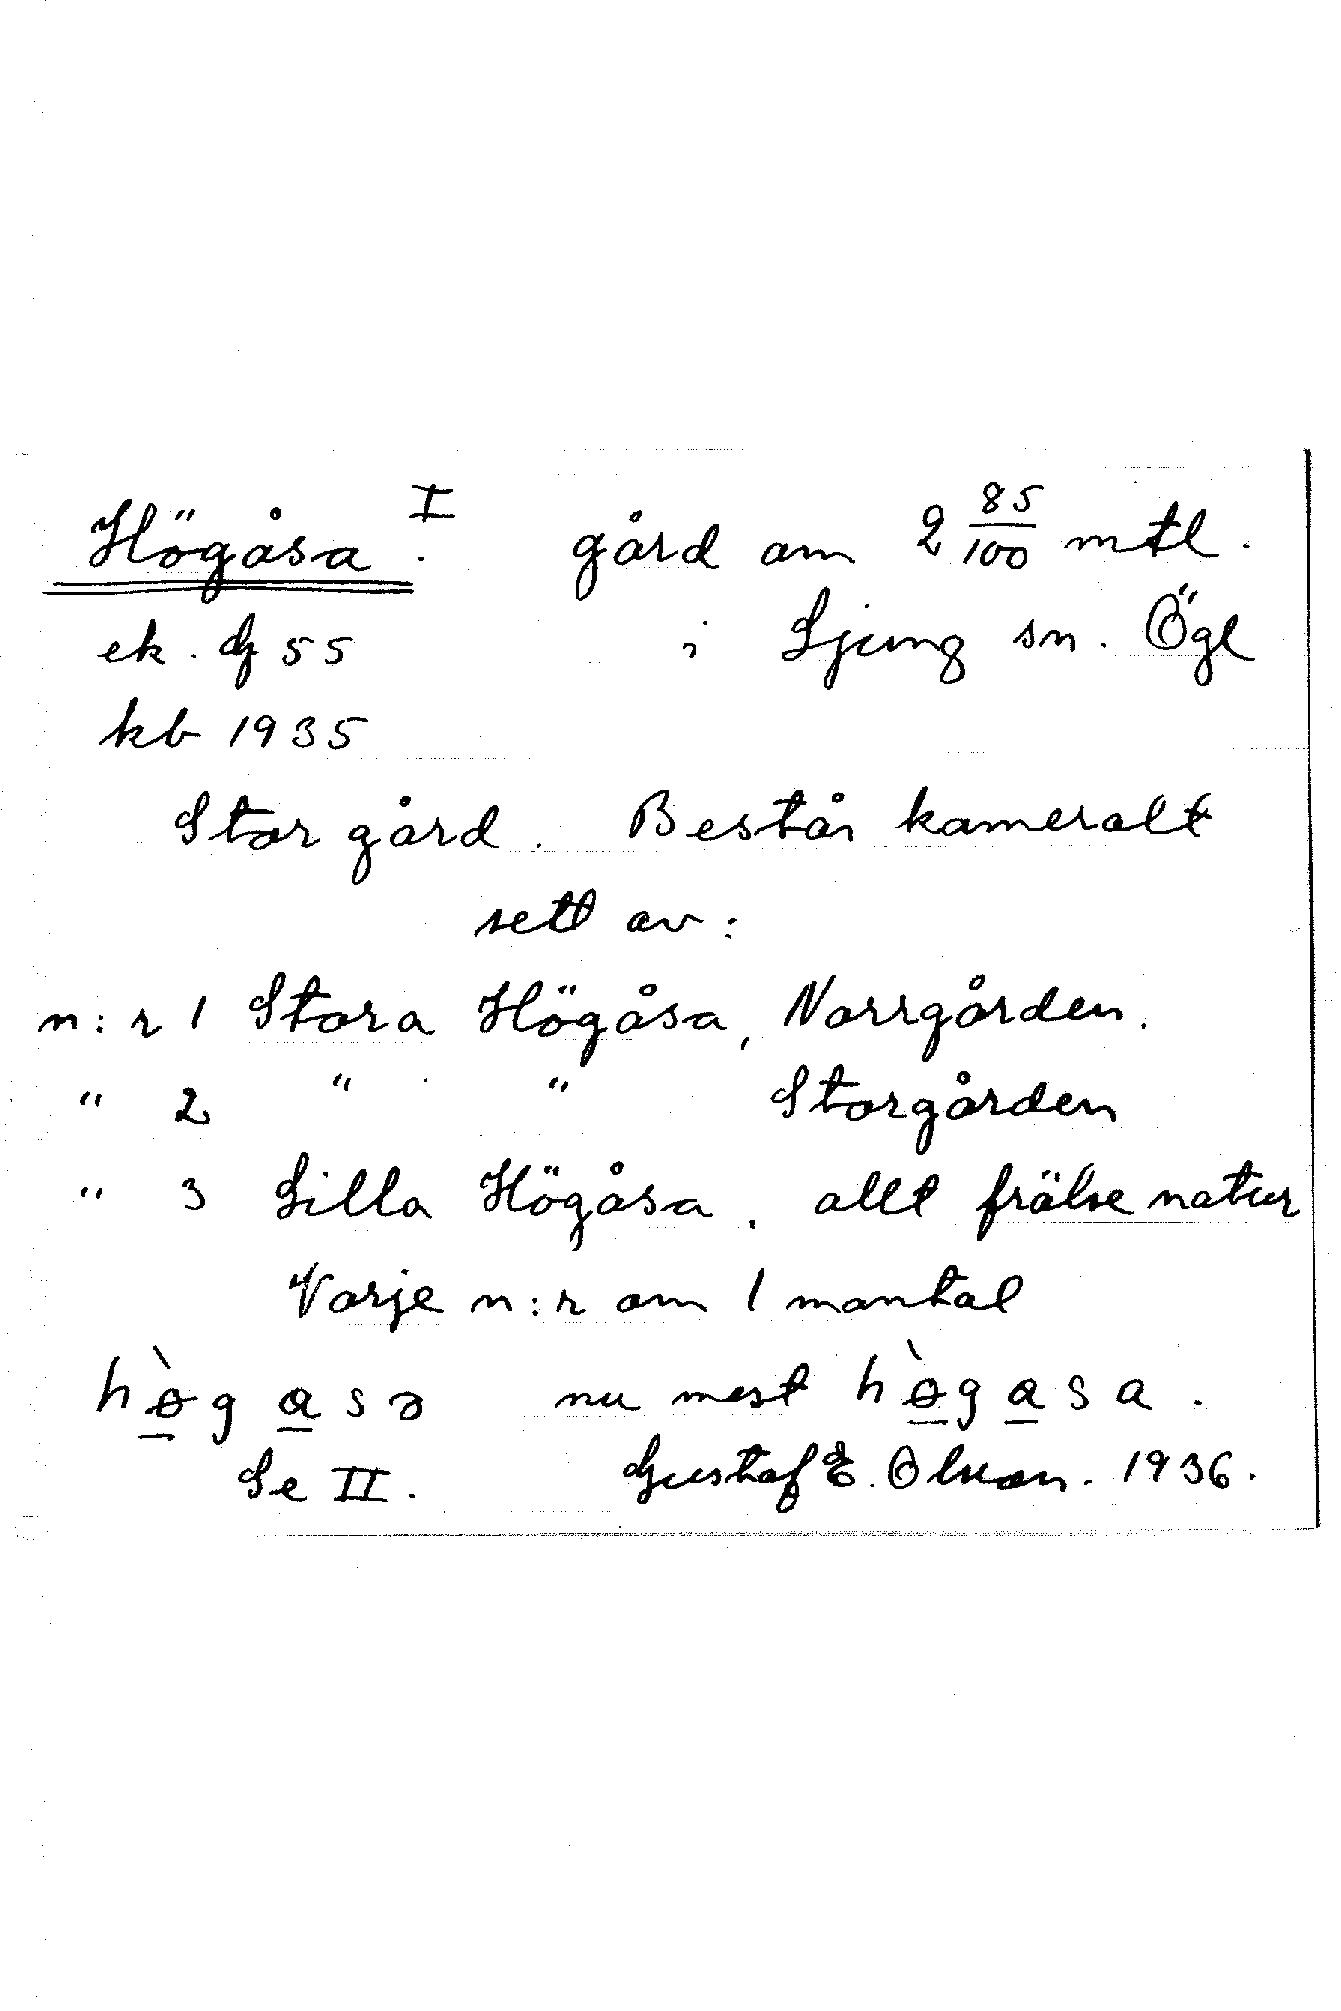 Högåsa I. gård om 2 85/100 mtl.
ek. G 55 i Ljung sn. Ögl
kb 1935
Stor gård. Består kameralt
sett av:
n:r 1 Stora Högåsa, Norrgården.
" 2 " " Storgården
" 3 Lilla Högåsa. allt frälse natur
Varje n:r om 1 mantal
hø̀gɑsə nu mest hø̀gɑsa.
Se II. Gustaf E. Olsson. 1936.